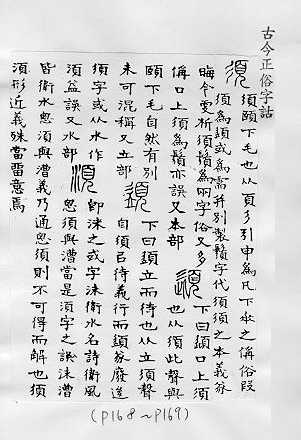 古今正俗字詁
須 須頤下毛也从頁彡引申為凡下垂之稱俗叚
須為頾或為需并別製鬚字代須須之本義遂
晦今更析須鬚為兩字俗又多 頾 下曰頾口上須
偁口上須為鬚亦誤又本部 也从須此聲與
頤下毛自然有別 䇓 下曰䇓立而待也从立須聲
未可混稱又立部 自須待義行而䇓遂廢
須字或从水作 湏 即沬之或字沬衛水名詩衛風
湏益誤又水部 思須與漕當是湏字之誤沬漕
皆衛水思須與漕義乃通思須則不可得而解也須
湏形近義殊當留意焉
(P168~P169)